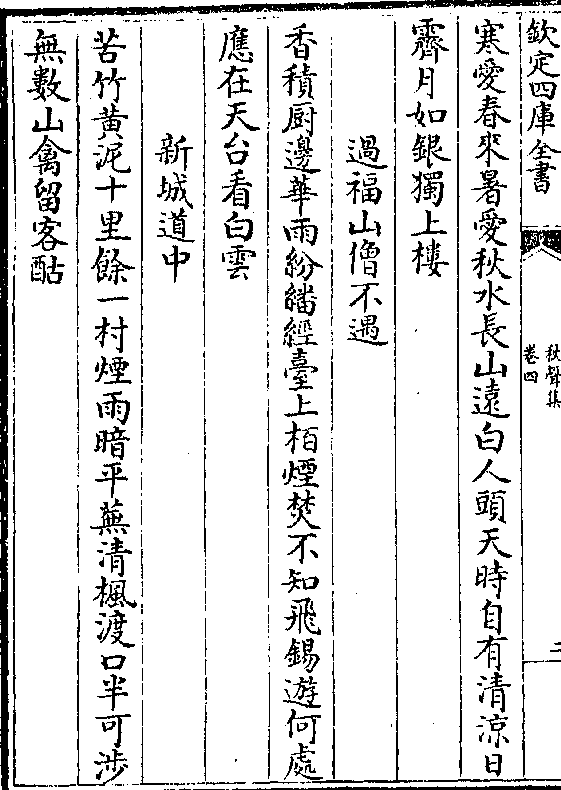 欽定四庫全書
秋聲集
卷四
二
寒愛春來暑愛秋水長山遠白人頭天時自有清涼日
霽月如銀獨上樓
過福山僧不遇
香積厨邊華雨紛繙經臺上栢煙焚不知飛錫遊何處
應在天台看白雲
新城道中
苦竹黄泥十里餘一村煙雨暗平蕪清楓渡口半可涉
無數山禽留客酤